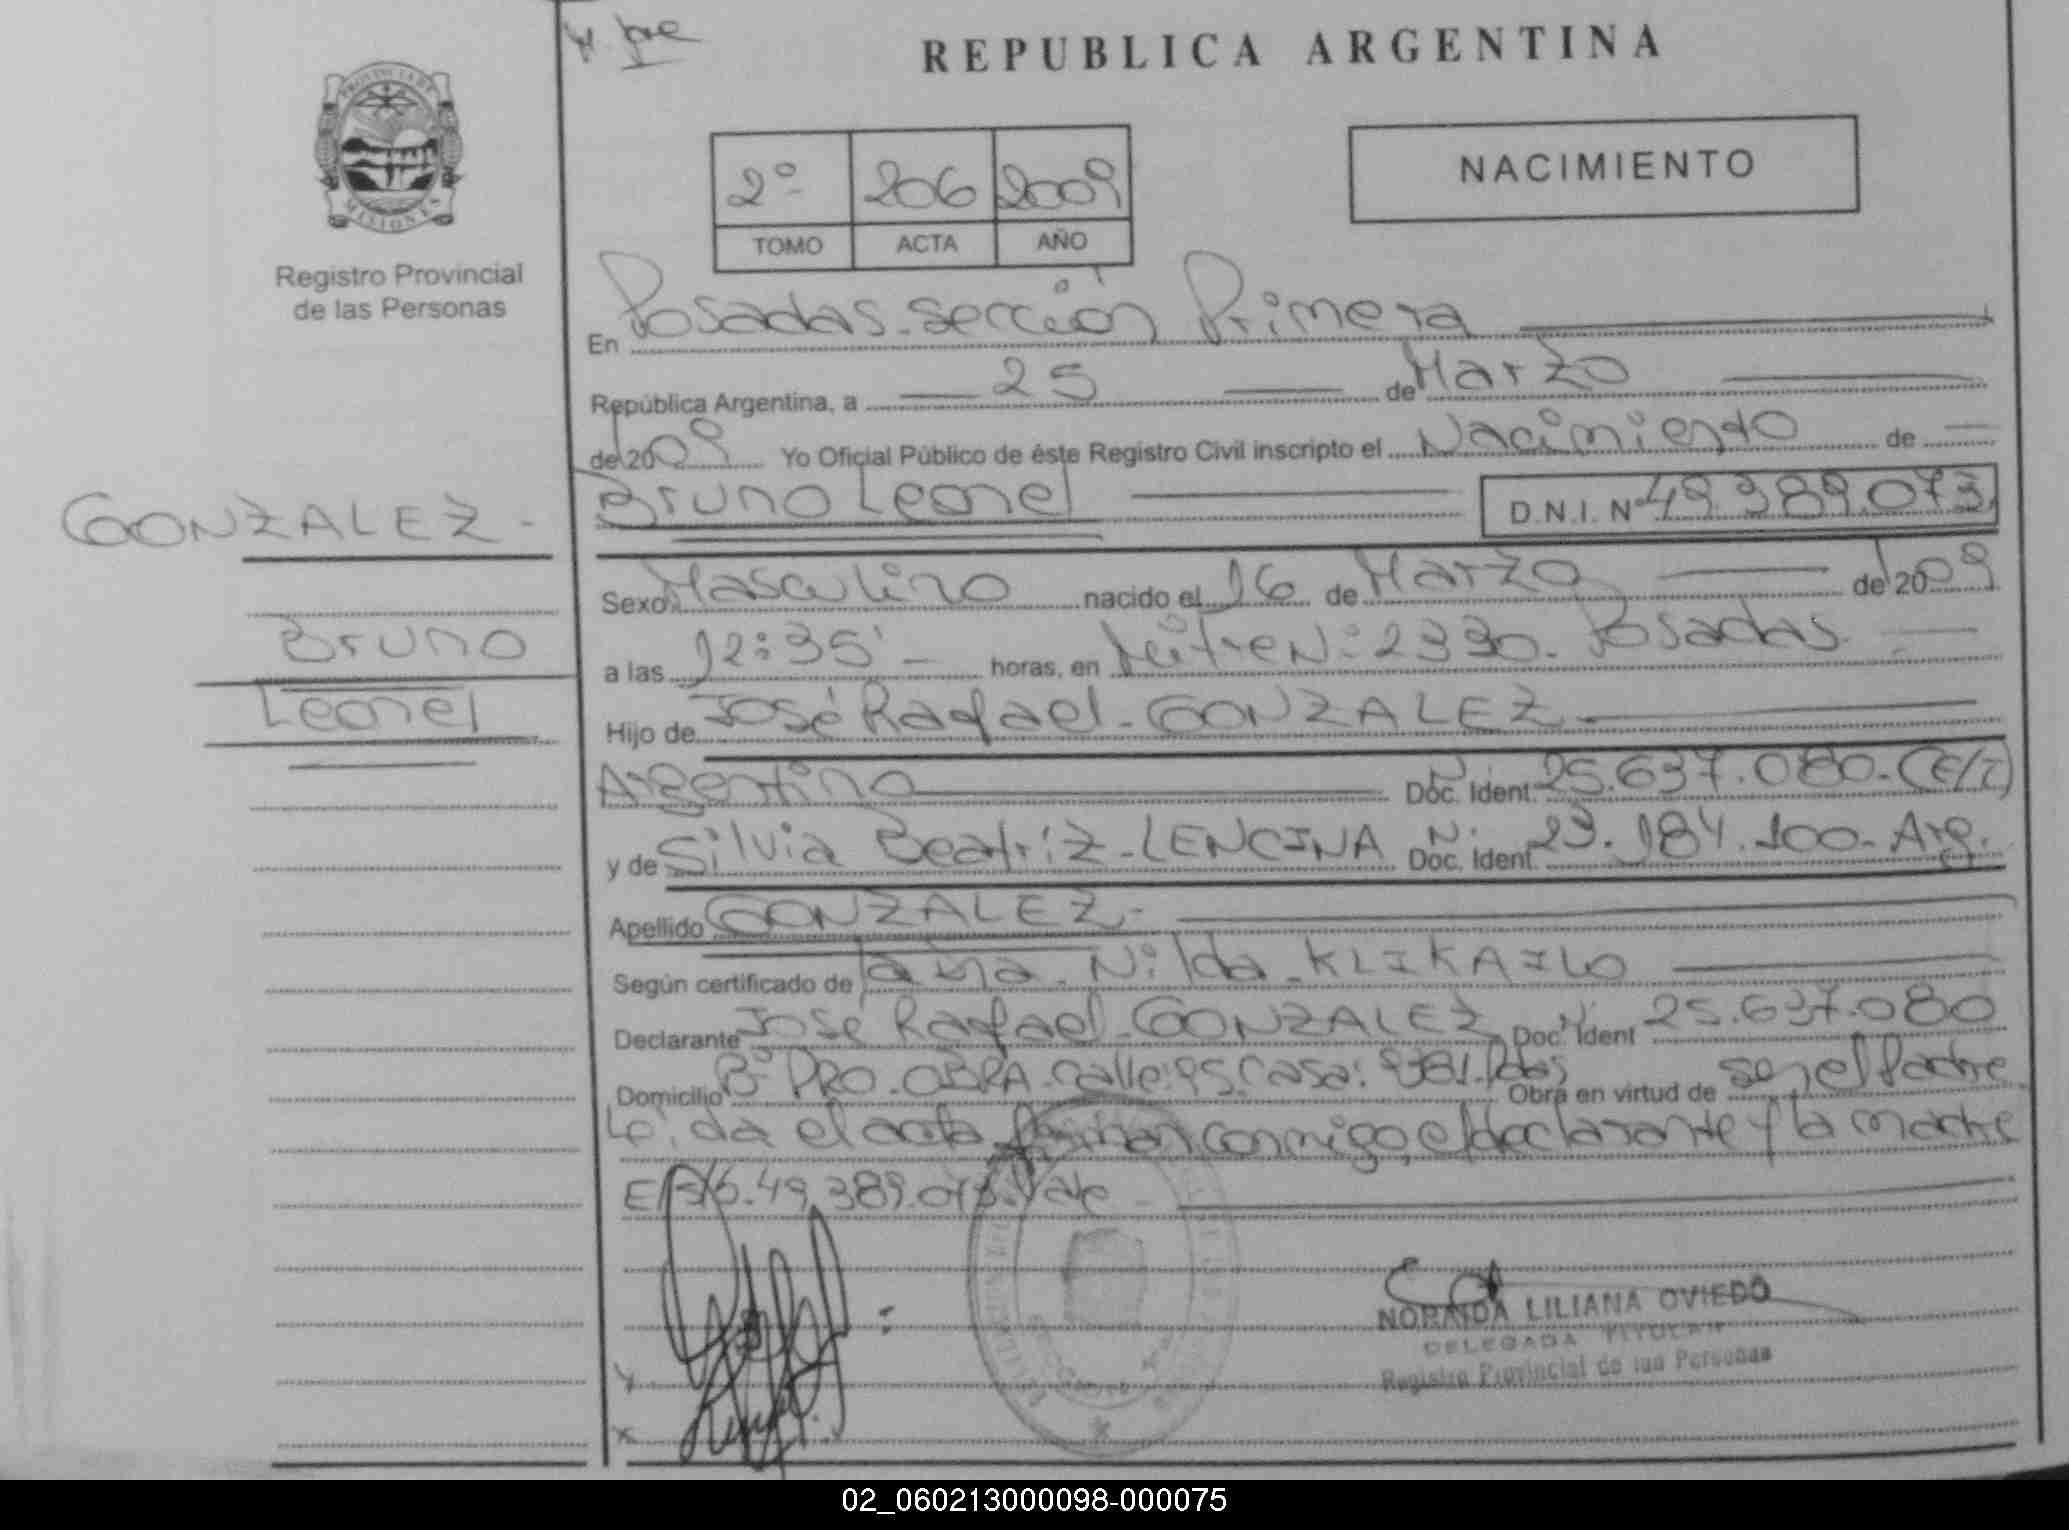 REPUBLICA ARGENTINA
PROVINCIA DE MISIONES
Registro Provincial
de las Personas
2º 206 2009
TOMO ACTA AÑO
NACIMIENTO
En Posadas-sección Primera
República Argentina, a 25 de Marzo
de 2009 Yo Oficial Público de éste Registro Civil inscripto el Nacimiento de
GONZALEZ-
Bruno Leonel D.N.I. Nº 49.389.073
Sexo Masculino nacido el 16 de Marzo de 2009
Bruno
Leonel
a las 12:35' horas, en Mitre Nº: 2330. Posadas.
Hijo de José Rafael-GONZALEZ
Argentino Doc. Ident. Nº 25.637.080-(E/T)
y de Silvia Beatriz-LENCINA Doc. Ident. Nº 23.184.100-Arg.
Apellido GONZALEZ-
Según certificado de la Nilda-KLIKAILO
Declarante José Rafael-GONZALEZ Doc. Ident Nº 25.637.080
Domicilio Bº PRO.OBRA-calle: casa: Obra en virtud de ser el Padre
Leída el acta firman conmigo, el declarante y la madre
49.389.073. Vale
NORAIDA LILIANA OVIEDO
DELEGADA TITULAR
Registro Provincial de las Personas
02_060213000098-000075